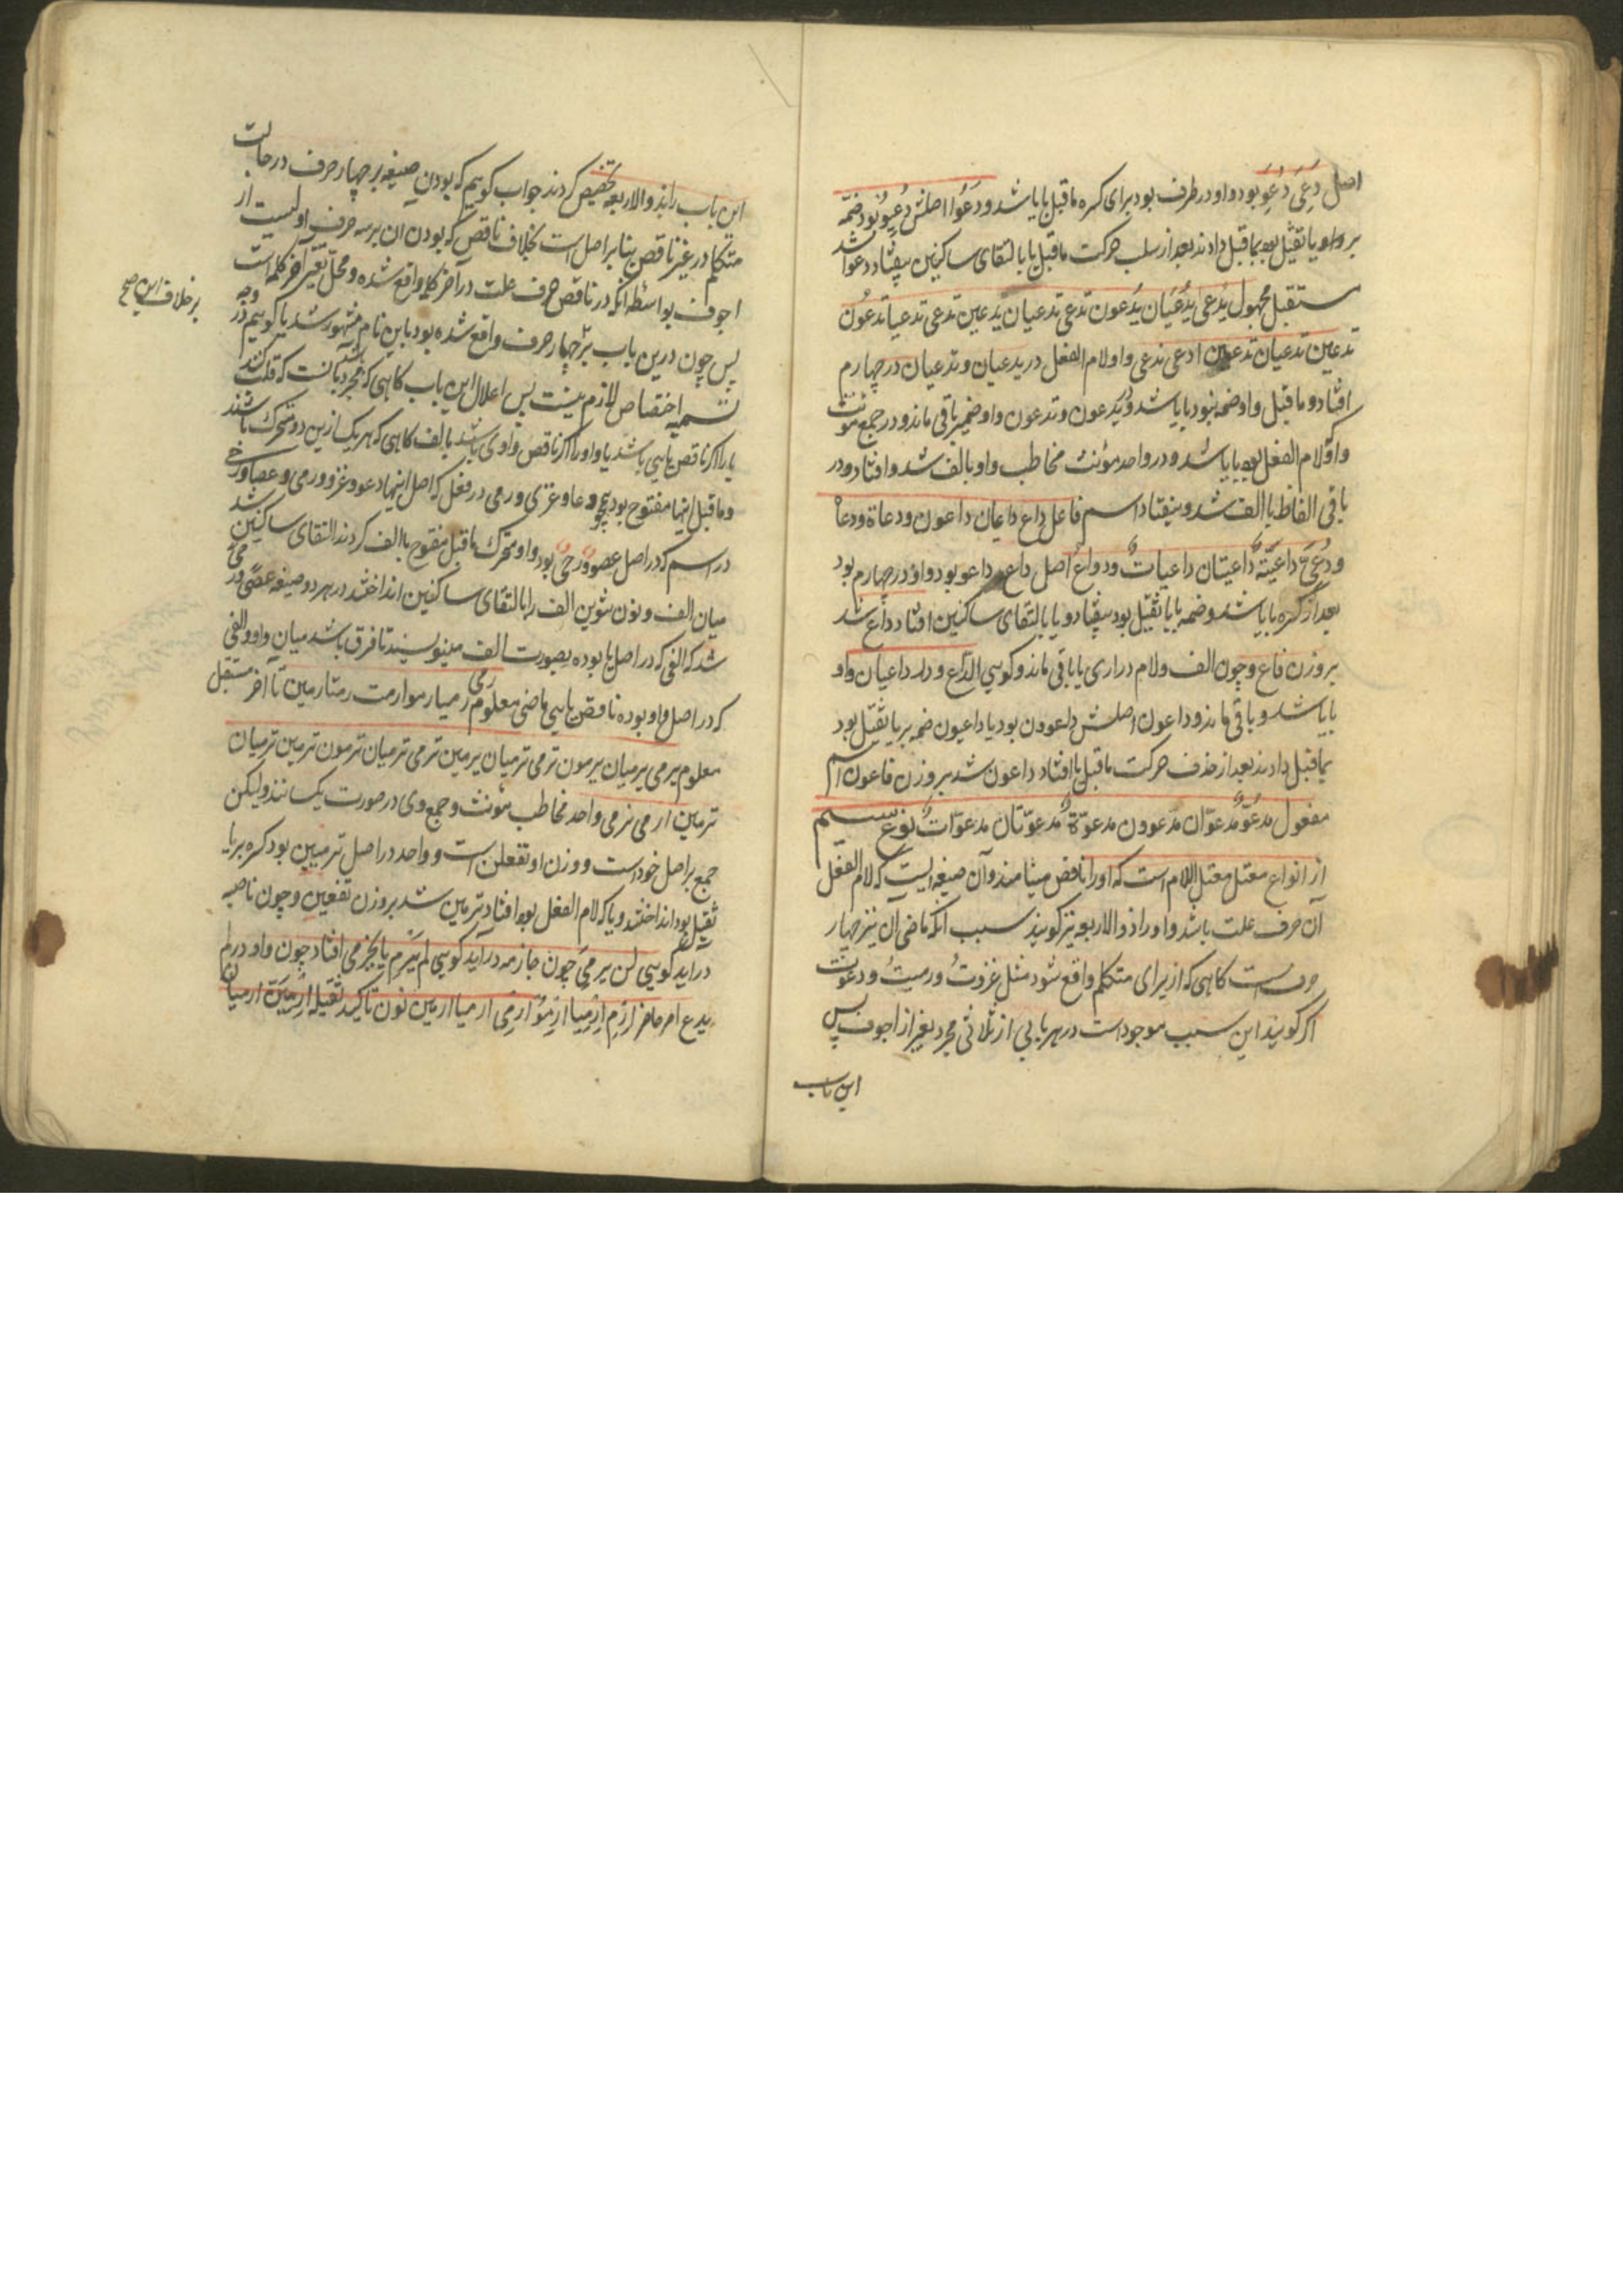 اصل دُعِیَ دُعِوَ بود واو در طرف بود برای کسره ماقبل با یا شد و دُعُوا اصلش دُعِوُوا بود ضمه
بر واو یا ثقیل بود بماقبل دادند بعد از سلب حرکت ماقبل یا بالتقای ساکنین بیفتاد دعوا شد
مستقبل مجهول یُدعی یُدعَیَان یُدعَون تدعی تدعیان یدعین تدعی تدعیان تدعون
تدعین تدعیان تدعین ادعی ندعی واو لام الفعل در یدعیان و تدعیان در چهارم
افتاد و ماقبل واو ضمه نبود با یا شد و یُدعون و تدعون واو ضمیر باقی ماند و در جمع مؤنث
واو لام الفعل بود با یا شد و در واحد مؤنث مخاطب واو با الف شد و افتاد و در
باقی الفاظ با الف شد و نیفتاد اسم فاعل داع داعیان داعون و دعاة و دعاء
و دُعیً داعیَةٌ داعیتان داعیات و دواع اصل داع داعو بود واو در چهارم بود
بعد از کسره با یا شد و ضمه بر یا ثقیل بود بیفتاد و یا بالتقای ساکنین افتاد داع شد
بر وزن فاع و چون الف و لام دراری یا باقی ماند و کویی الداع و در داعیان واو
با یا شد و باقی ماند و داعون اصلش داعوون بود یا داعیون ضمه بر یا ثقیل بود
بماقبل دادند بعد از حذف حرکت ماقبل یا افتاد داعون شد بر وزن فاعون اسم
مفعول مدعُوٌّ مدعوّان مدعوون مدعوّة مدعوّتان مدعوّات نوع سیم
از انواع معتل معتل اللام است که او را ناقص مینامند و آن صیغه ایست که لام الفعل
آن حرف علت باشد و او را ذوالاربعه نیز کویند سبب آنکه ماضی ان نیز چهار
حرفست کاهی که از برای متکلم واقع شود مثل غزوتُ و رمیتُ و دعوتُ
اکر کویند این سبب موجود است در هر بابی از ثلاثی مجرد بغیر از اجوف پس
این باب
این باب را بذوالاربعه تخصیص کردند جواب کوییم که بودن صیغه بر چهار حرف در حالت
متکلم در غیر ناقص بنا بر اصل است بخلاف ناقص که بودن ان بر سه حرف اولیست از
اجوف بواسطه آنکه در ناقص حرف علت در آخر کلمه واقع شده و محل تغییر آخر کلمه است
پس چون درین باب بر چهار حرف واقع شده بود باین نام مشهور شد یا کوییم در وجه
تسمیه اختصاص لازم نیست پس اعلال این باب کاهی که مجرد باشد آنست که قلب کنند
یا را اکر ناقص یایی باشد یا واو را اکر ناقص واوی باشد بالف کاهی که هر یک ازین دو متحرک باشند
و ماقبل اینها مفتوح بود همچو دعا و غزی و رمی در فعل که اصل اینها دعو و غزو و رمی و عصا و رحی
در اسم که در اصل عصوٌ و رحیٌ بود واو متحرک ماقبل مفتوح با الف کردند التقای ساکنین شد
میان الف و نون تنوین الف را بالتقای ساکنین انداختند در هر دو صیغه عصًی و رحًی
شد که الفی که در اصل یا بوده بصورت الف مینویسند تا فرق باشد میان واو و الفی
که در اصل واو بوده ناقص یایی ماضی معلوم رمی رمیا رموا رمت رمتا رمین تا آخر مستقبل
معلوم یرمی یرمیان یرمون ترمی ترمیان یرمین ترمی ترمیان ترمون ترمین ترمیان
ترمین ارمی نرمی واحد مخاطب مؤنث و جمع وی در صورت یکسانند ولیکن
جمع بر اصل خود است و وزن او تفعلن است و واحد در اصل ترمیین بود کسره بر یا
ثقیل بود انداختند و یا که لام الفعل بود افتاد ترمین شد بر وزن تفعین و چون ناصبه
دراید کویی لن یرمیَ چون جازمه درآید کویی لم یرمِ یا بجزمی افتاد چون واو در لم
یدع امر حاضر ارم ارمیا ارموا ارمی ارمیا ارمین نون تاکید ثقیله ارمینّ ارمیانّ
بر خلاف این صح